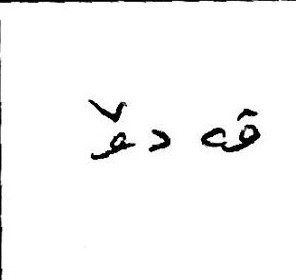 قەدۆ